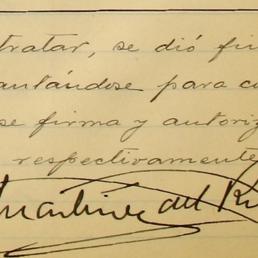 tratar, se dió fi
antándose para c
se firma y autoriz
respectivamente
Martínez del Rí